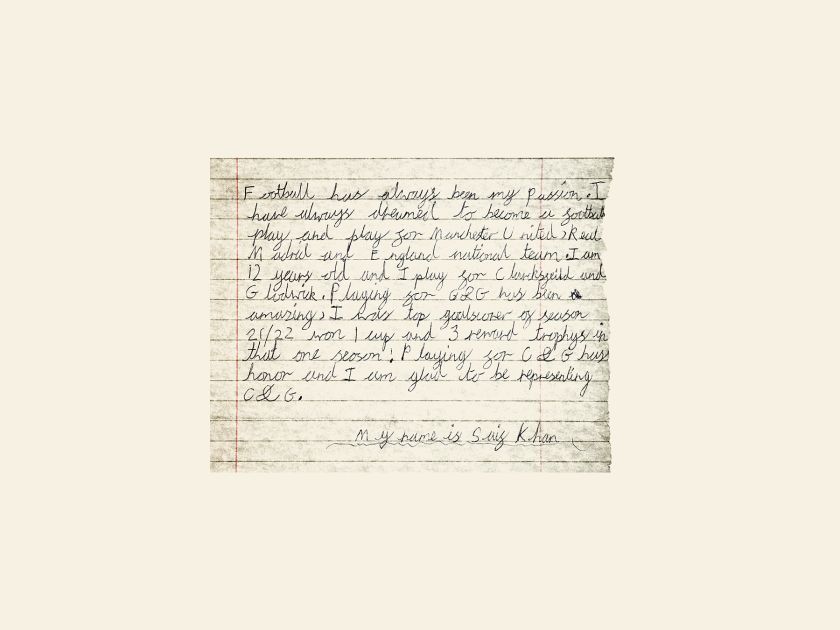 Football has always been my passion. I
have always dreamed to become a football
play and play for Manchester United, Real
Madrid and England national team. I am
12 years old and I play for Clerksfeild and
Glodwick. Playing for G&G has been
amazing, I was top goalscorer of season
21/22 won 1 cup and 3 reward trophys in
that one season! Playing for C&G has
honor and I am glad to be representing
C&G.
My name is Saiz Khan